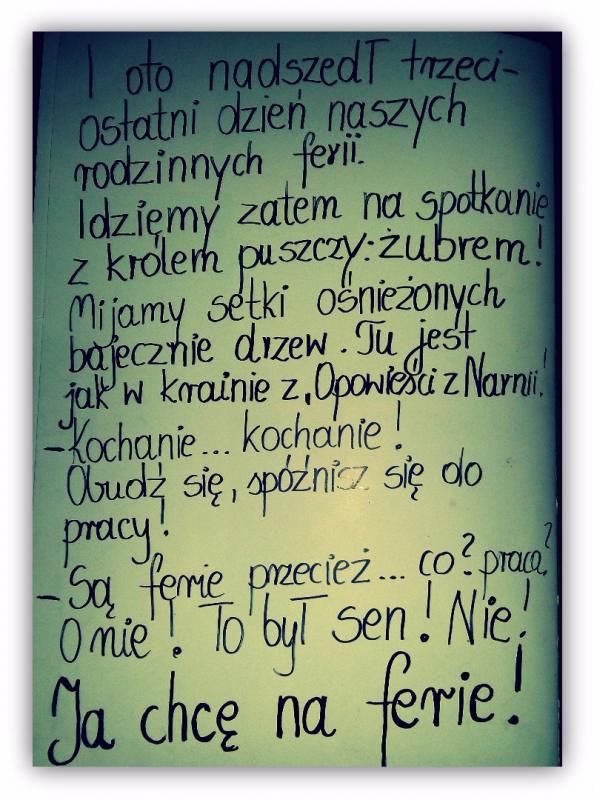 I oto nadszedł trzeci-
ostatni dzień naszych
rodzinnych ferii.
Idziemy zatem na spotkanie
z królem puszczy: żubrem!
Mijamy setki ośnieżonych
bajecznie drzew. Tu jest
jak w krainie z „Opowieści z Narnii"!
-Kochanie... kochanie!
Obudź się, spóźnisz się do
pracy!
-Są ferie przecież... co? praca?
O nie! To był sen! Nie!
Ja chcę na ferie!